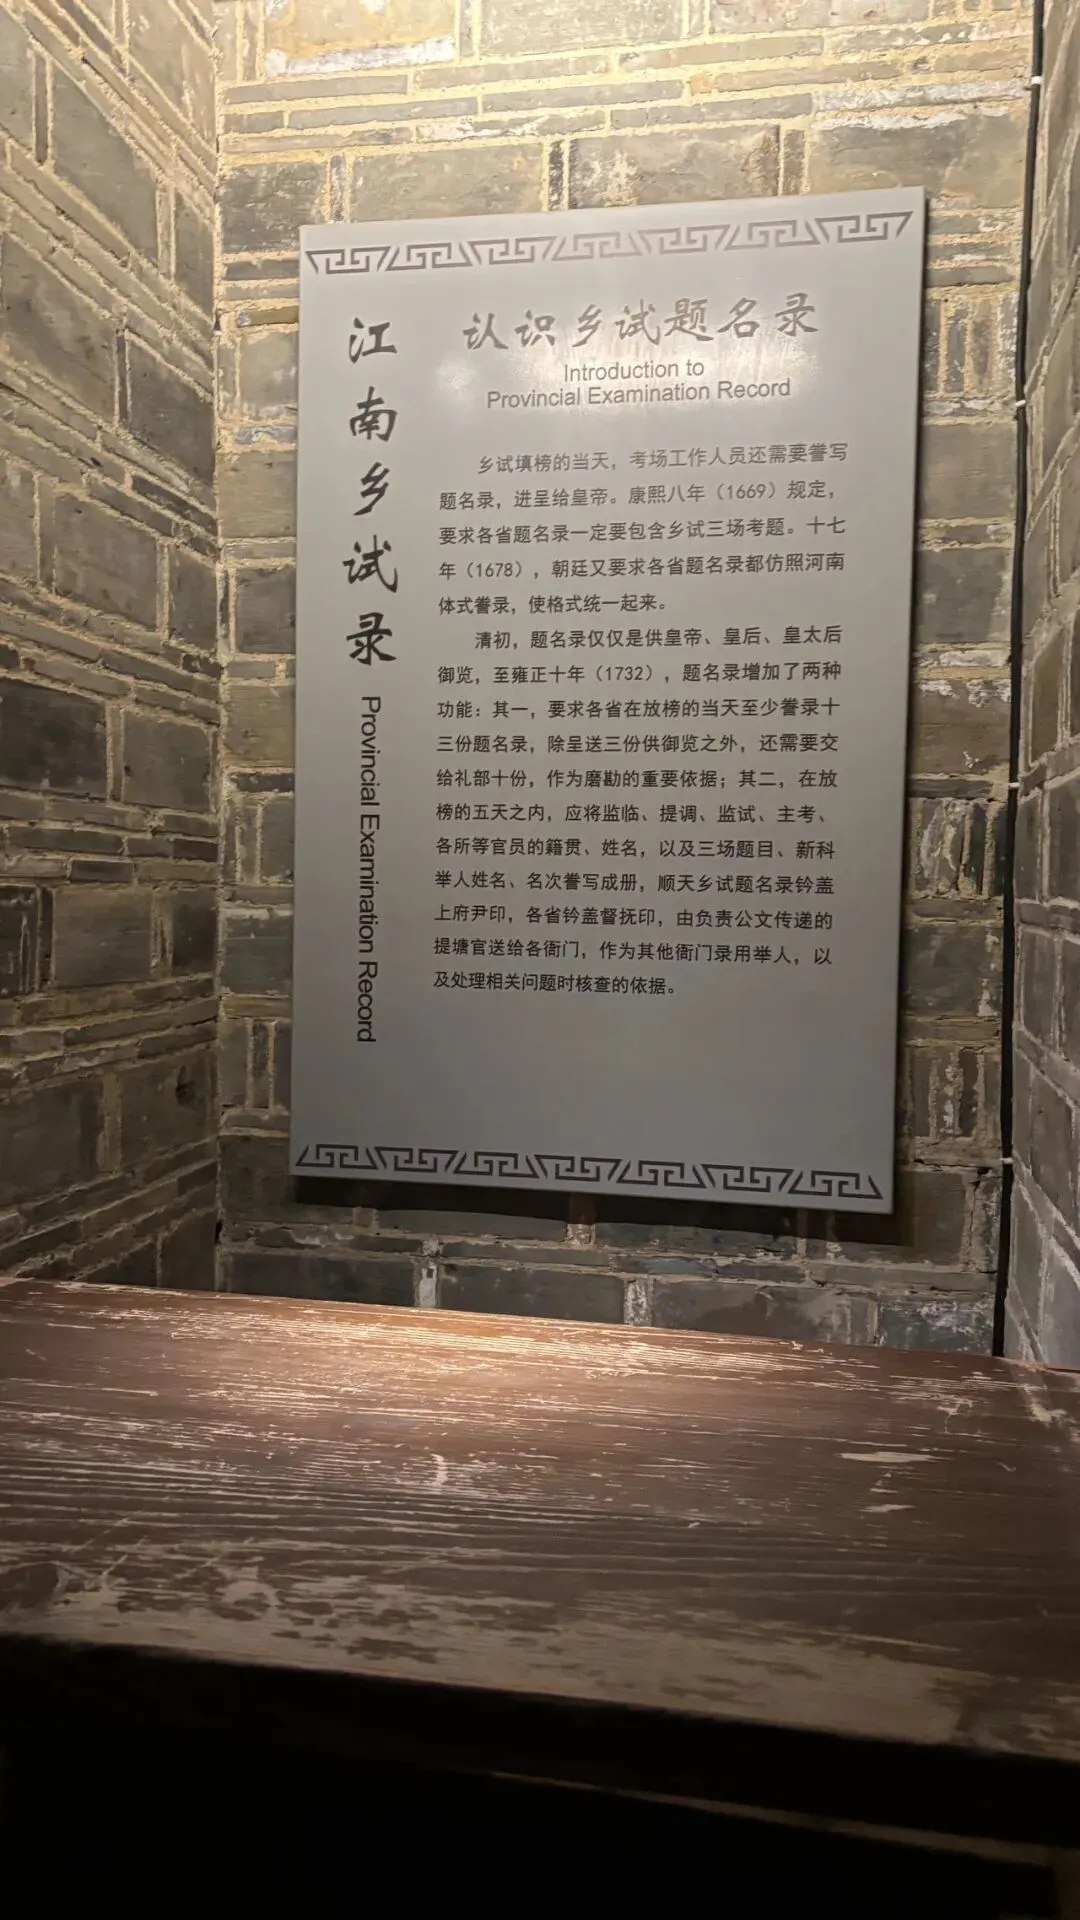 江南乡试录
Provincial Examination Record
认识乡试题名录
Introduction to
Provincial Examination Record
乡试填榜的当天，考场工作人员还需要誊写
题名录，进呈给皇帝。康熙八年（1669）规定，
要求各省题名录一定要包含乡试三场考题。十七
年（1678），朝廷又要求各省题名录都仿照河南
体式誊录，使格式统一起来。
清初，题名录仅仅是供皇帝、皇后、皇太后
御览，至雍正十年（1732），题名录增加了两种
功能：其一，要求各省在放榜的当天至少誊录十
三份题名录，除呈送三份供御览之外，还需要交
给礼部十份，作为磨勘的重要依据；其二，在放
榜的五天之内，应将监临、提调、监试、主考、
各所等官员的籍贯、姓名，以及三场题目、新科
举人姓名、名次誊写成册，顺天乡试题名录钤盖
上府尹印，各省钤盖督抚印，由负责公文传递的
提塘官送给各衙门，作为其他衙门录用举人，以
及处理相关问题时核查的依据。